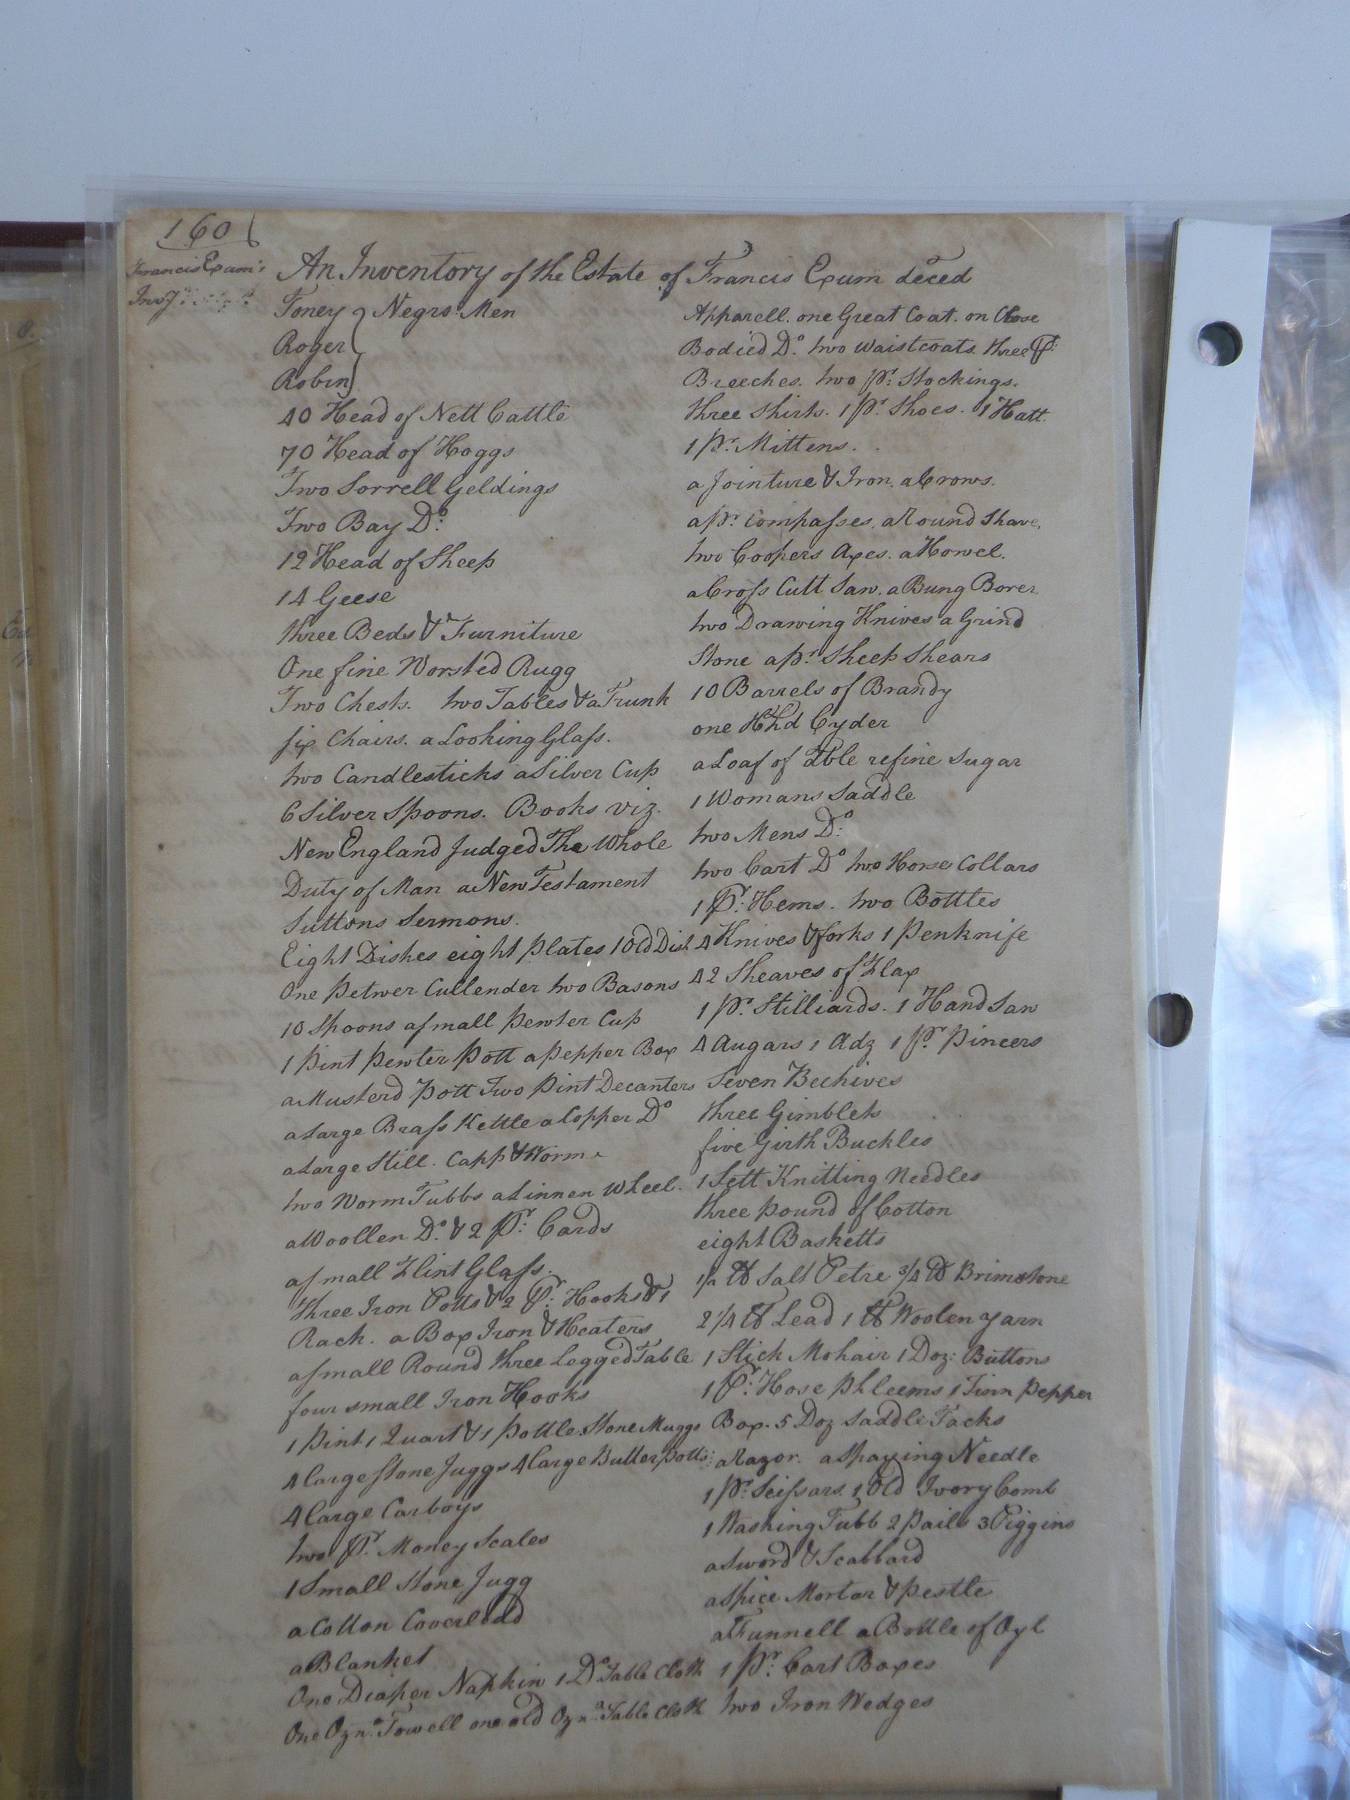 160
Francis Exum's
Invy
An Inventory of the Estate of Francis Exum deced
Toney } Negro Men
Roger
Robin
40 Head of Nett Cattle
70 Head of Hoggs
Two Sorrell Geldings
Two Bay Do:
12 Head of Sheep
14 Geese
three Beds & Furniture
One fine Worsted Rugg
Two Chests. two Tables & a Trunk
six Chairs. a Looking Glass.
two Candlesticks a Silver Cup
6 Silver Spoons. Books viz.
New England Judged The Whole
Duty of Man a New Testament
Suttons Sermons.
Eight Dishes eight plates 1 Old Dish
One Petwer Cullender two Basons
10 Spoons a small Pewter Cup
1 Pint Pewter Pott a Pepper Box
a Musterd Pott Two Pint Decanters
a Large Brass Kettle a Copper Do
a Large Still. Capp & Worm
two Worm Tubbs a Linnen Wheel.
a Woollen Do. & 2 Pr: Cards
a small Flint Glass.
three Iron Potts & 2 Pr: Hooks & 1
Rack. a Box Iron & Heaters
a small Round three Legged Table
four small Iron Hooks
1 Pint 1 Quart & 1 Pottle Stone Muggs
4 large stone Juggs 4 large Butter Potts
4 large Carboys
two Pr. Money Scales
1 Small Stone Jugg
a Cotton Coverledd
a Blanket
One Diaper Napkin 1 Do Table Cloth
One Ozna Towell one old Ozna Table Cloth
Apparell. one Great Coat. on Close
Bodied Do. two Waistcoats. three Pr:
Breeches. two pr: Stockings.
three Shirts. 1 pr Shoes. 1 Hatt.
1 pr. Mittens.
a Jointure & Iron. a Crows.
a pr: Compasses. a Round Shave.
two Coopers Axes. a Howel.
a Cross Cutt Saw. a Bung Borer
two Drawing Knives a Grind
Stone a pr: Sheep Shears
10 Barrels of Brandy
one Hhd Cyder
a Loaf of Dble refine Sugar
1 Womans Saddle
two Mens Do:
two Cart Do two Horse Collars
1 Pr: Hems. two Bottles
4 Knives & forks 1 Penknife
42 Sheaves of Flax
1 Pr Stilliards. 1 Hand Saw
4 Augars 1 Adz 1 Pr Pincers
Seven Beehives
three Gimblets
five Girth Buckles
1 Sett Knitting Needles
three pound of Cotton
eight Basketts
1/2 lb Salt Petre 3/4 lb Brimstone
2 1/4 lb Lead 1 lb Woolen yarn
1 Stick Mohair 1 Doz: Buttons
1 Pr: Hose Phleems 1 Tinn Pepper
Box. 5 Doz Saddle Tacks
a Razor. a Spaying Needle
1 Pr Scissars 1 Old Ivory Comb
1 Washing Tubb 2 Pails 3 Piggins
a Sword & Scabbard
a Spice Mortar & Pestle
a Funnell a Bottle of Oyl
1 Pr: Cart Boxes
two Iron Wedges